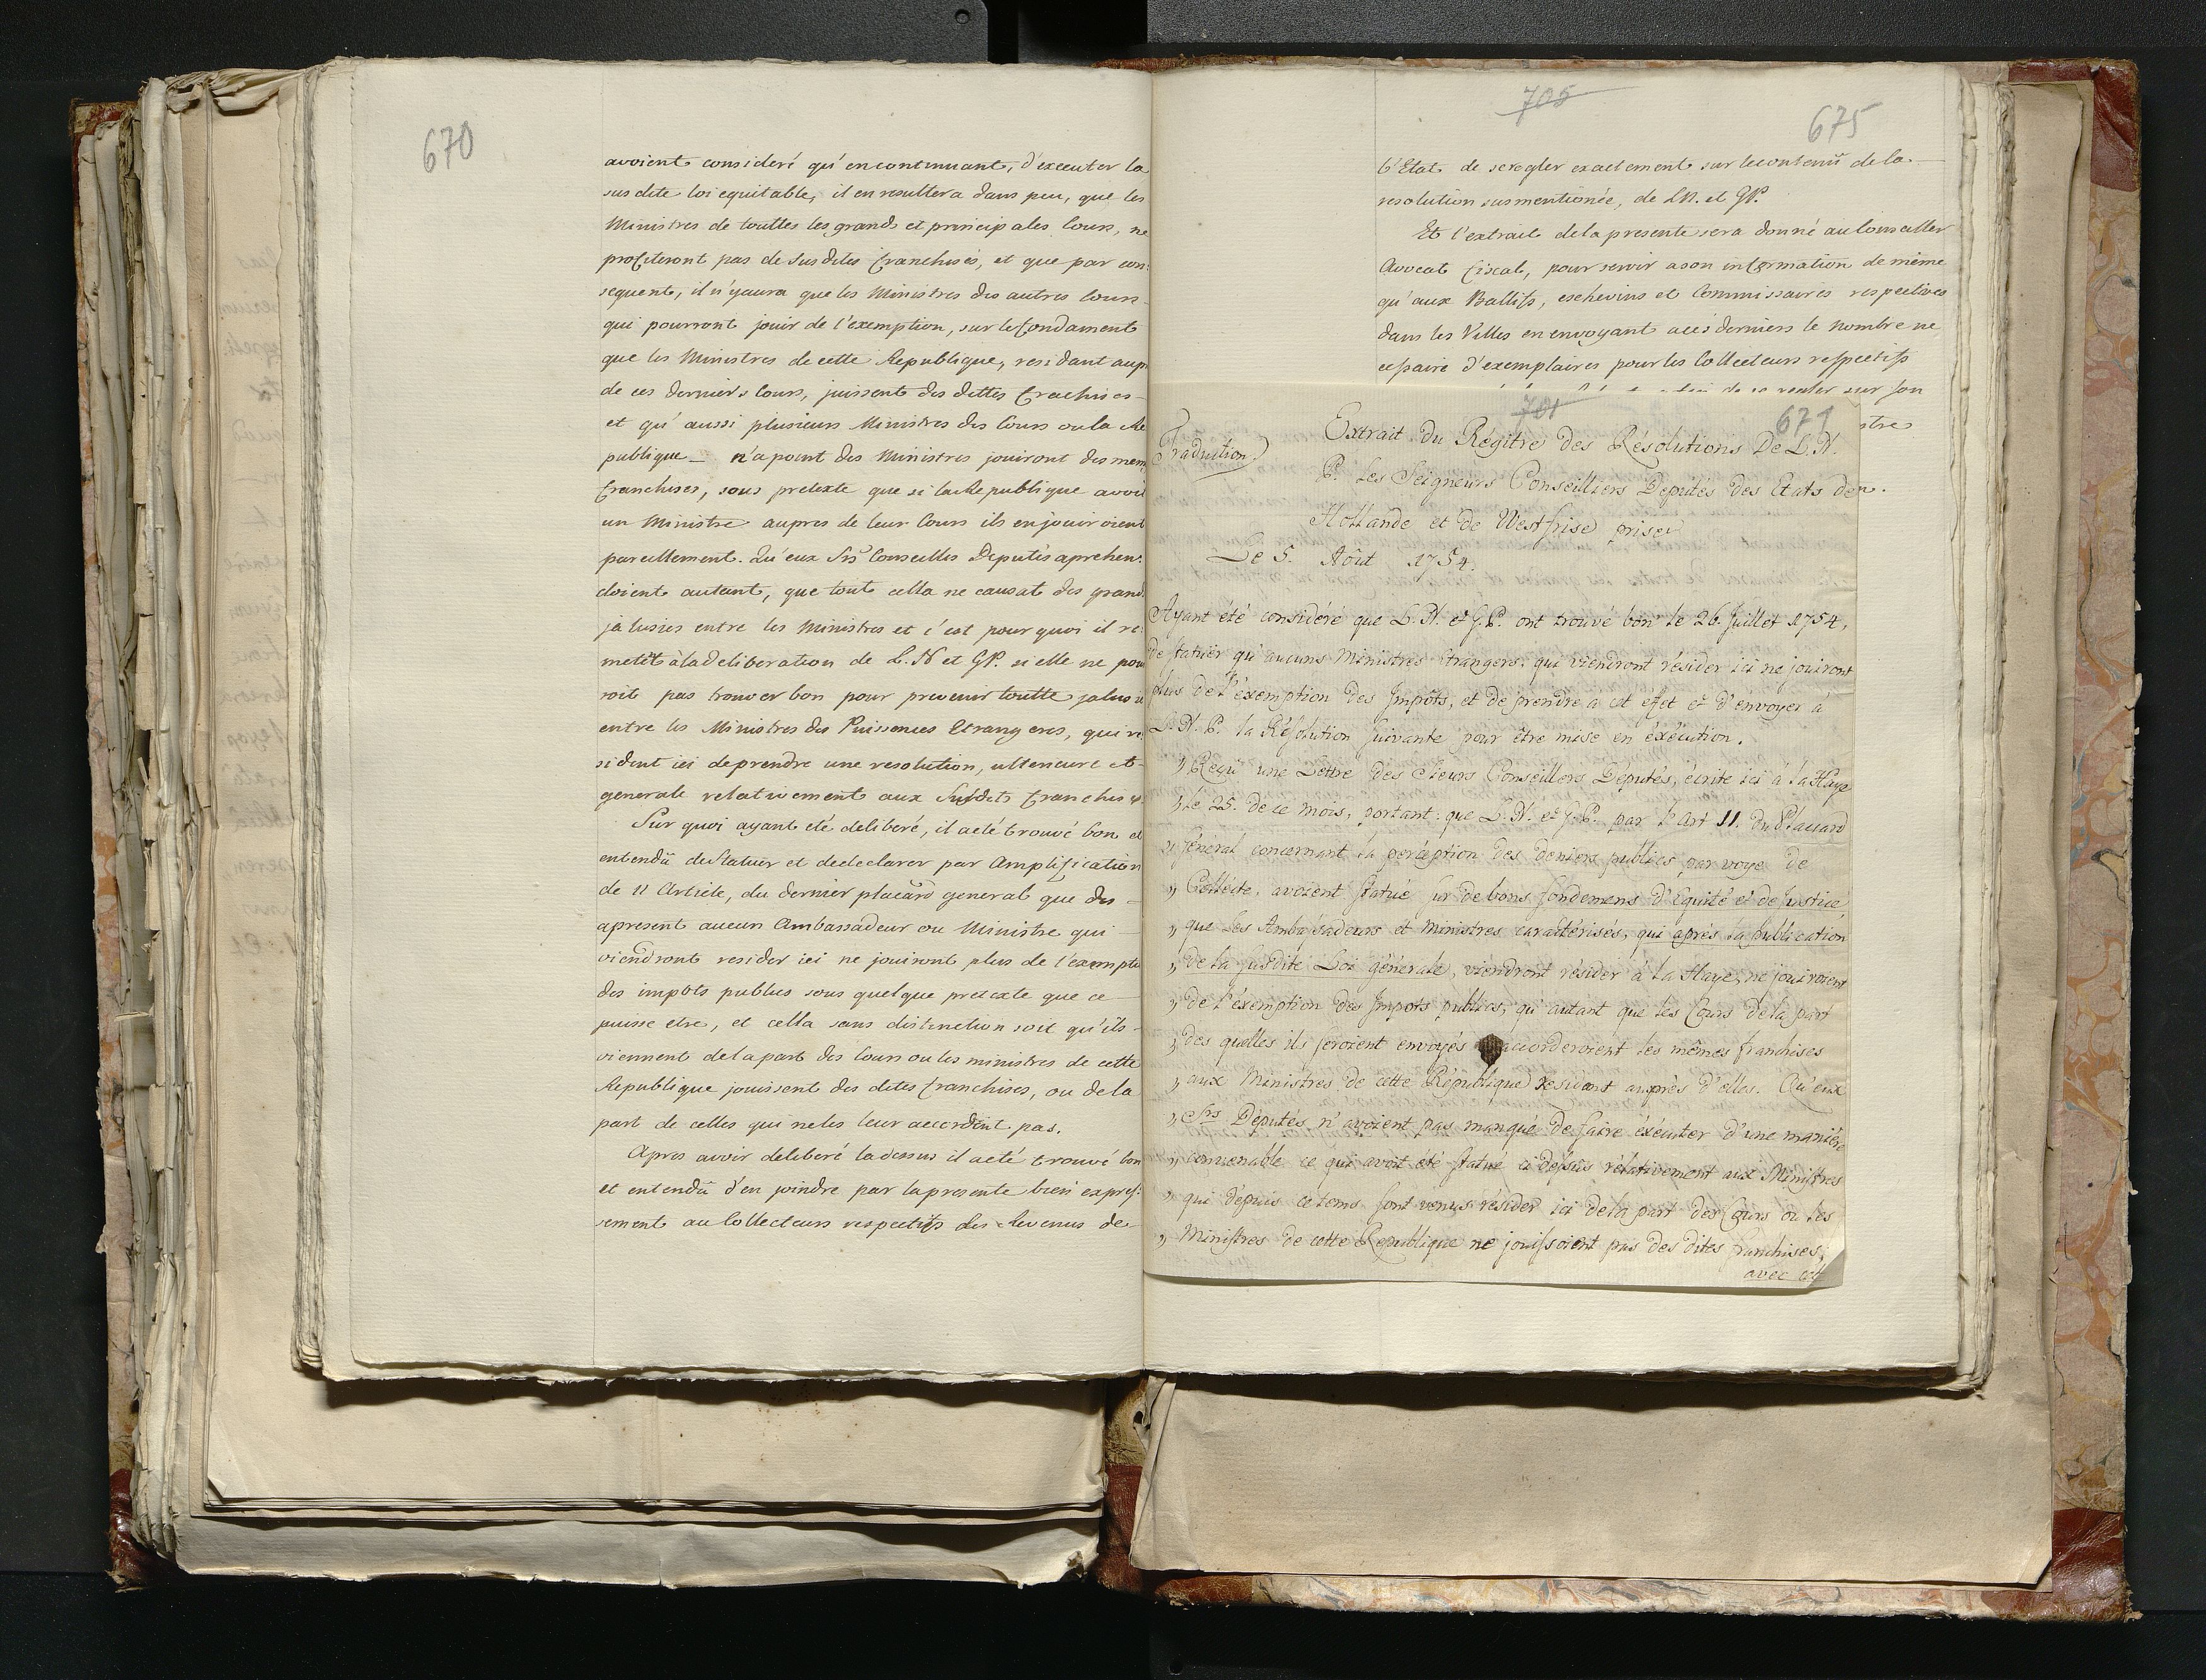 670
avoient consideré qu'en continuant, d'executer la
sus dite loi equitable, il en resultera dans peu, que les
Ministres de toutles les grands et principales Cours, ne
profiteront pas de susdites franchises, et que par con:
sequent, il n'yaura que les Ministres des autres Cours
qui pourront jouir de l'exemption, sur le fondament
que les Ministres de cette Republique, residant aup
de ces derniers Cours, juissent des dittes frachises
et qu'aussi plusieurs Ministres des Cours ou la Re
publique n'a point des Ministres jouiront des mem
franchises, sous pretexte que si la Republique avoit
un Ministre aupres de leur Cours ils en jouiroient
pareillement. Qu'eux Srs Conseilles Deputés aprehen:
doient autant, que tout cella ne causat des grand
jalusies entre les Ministres et c'est pourquoi il re:
metêt à la deliberation de L. N et GP. si elle ne pour
roit pas trouver bon pour prevenir toutte jalusie
entre les Ministres des Puissences Etrangeres, qui re:
sident ici de prendre une resolution, ulterieure et
generale relativement aux Susdits franchises.
Sur quoi ayant eté deliberé, il a eté trouvé bon et
entendû de Statuer et de declarer par Amplification
de 11 Article, du dernier placard general que des
apresent aucun Ambassadeur ou Ministre qui
viendront resider ici ne jouiront plus de l'exemptio
des impots publics sous quelque pretexte que ce
puisse etre, et cella sans distinction soit qu'ils
viennent de la part des Cours ou les ministres de cette
Republique jouissent des dites franchises, ou de la
part de celles qui ne les leur accordent pas.
Apres avoir deliberé la dessus il a eté trouvé bon
et entendû d'en joindre par la presente bien expres:
sement au Collecteurs respectifs des Revenus de
705
675
l'Etat de se regler exactement sur le contenû de la
resolution sus mentionée, de LN. et GP.
Et l'extrait de la presente sera donné au Conseiller
Avocat fiscal, pour servir a son information de même
qu'aux Ballifs, eschevins et Commissaires respectives
dans les Villes en envoyant a ces derniers le nombre ne
cessaire d'exemplaires pour les Collecteurs respectifs
sur son
stres
701
671
Traduction.
Extrait du Régitre des Résolutions De L. N.
P. Les Seigneurs Conseilliers Deputés des Etats de
Hollande et de Westfrise prise
Le 5. Aôut 1754.
Ayant été considéré que L. N. et G. P. ont trouvé bon le 26. Juillet 1754,
de statuër qu'aucuns Ministres Etrangers, qui viendront résider ici ne jouiront
plus de l'éxemption des Impôts, et de prendre à cet effet et d'envoyer à
L. N. P. la Résolution suivante pour être mise en éxécution.
" Reçu une Lettre des Sieurs Conseillers Députés, écrite ici à la Haye
" le 25. de ce mois, portant: que L. N. et G. P. par l'Art 11. du Placard
" général concernant la perception des deniers publics par voye de
" Collecte, avoient statué sur de bons fondemens d'Equité et de justice
" que les Ambassadeurs et Ministres caractérisés, qui aprés la publication
" de la susdite Loi générale, viendront résider à la Haye, ne jouiroient
" de l'éxemption des Impots publics, qu'autant que les Cours de la part
" des quelles ils seroient envoyés accorderoient les mêmes franchises
" aux Ministres de cette République residant auprès d'elles. Qu'eux
" Srs Députés n'avoient pas manqué de faire éxécuter d'une maniére
" convenable ce qui avoit été statué ci dessus rélativement aux Ministres
" qui depuis ce tems sont venus résider ici de la part des Cours où les
" Ministres de cette Republique ne jouissoient pas des dites franchises,
avec